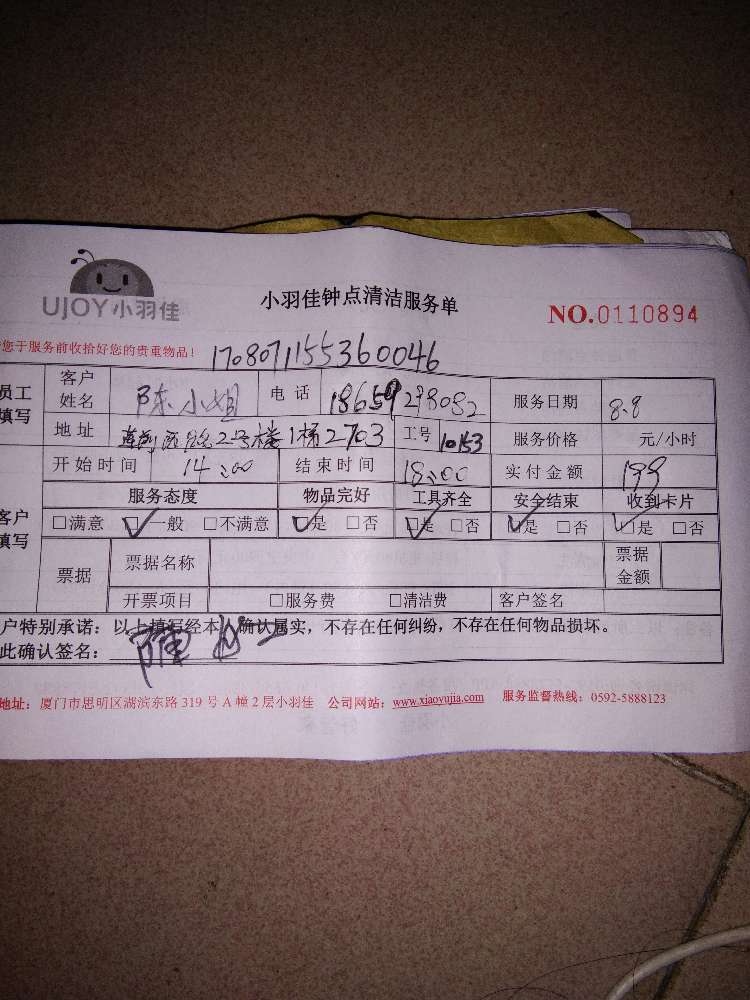 UJOY小羽佳
小羽佳钟点清洁服务单
NO.0110894
您于服务前收拾好您的贵重物品! 170807115536 0046
员工填写 客户姓名 陈小姐 电话 18659238082 服务日期 8.8
地址 2号楼1梯2703 工号 10153 服务价格 元/小时
开始时间 14:00 结束时间 18:00 实付金额 199
客户填写 服务态度 物品完好 工具齐全 安全结束 收到卡片
□满意 □一般 □不满意 □是 □否 □是 □否 □是 □否 □是 □否
票据 票据名称 票据金额
开票项目 □服务费 □清洁费 客户签名
户特别承诺:以上填写经本人确认属实,不存在任何纠纷,不存在任何物品损坏。
此确认签名: 陈
地址:厦门市思明区湖滨东路 319 号 A 幢 2 层小羽佳 公司网站:www.xiaoyujia.com 服务监督热线:0592-5888123